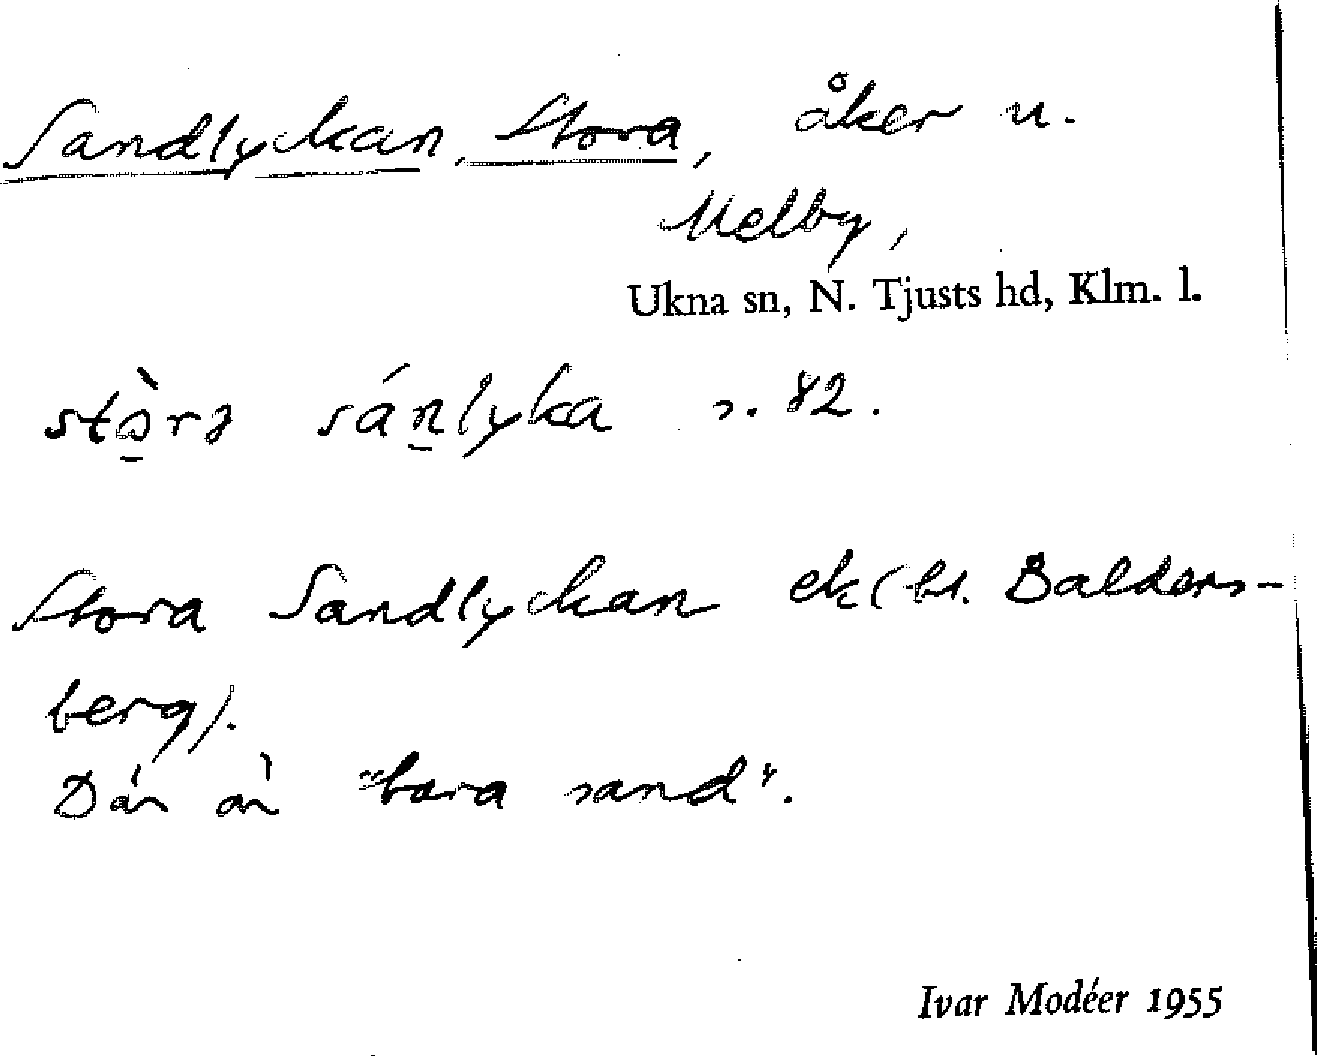 Sandlyckan, Stora, åker u.
Melby,
Ukna sn, N. Tjusts hd, Klm. l.
stò̱rə sáṉlyka s. 82.
Stora Sandlyckan ek (bl. Balders-
berg).
Där är "bara sand".
Ivar Modéer 1955